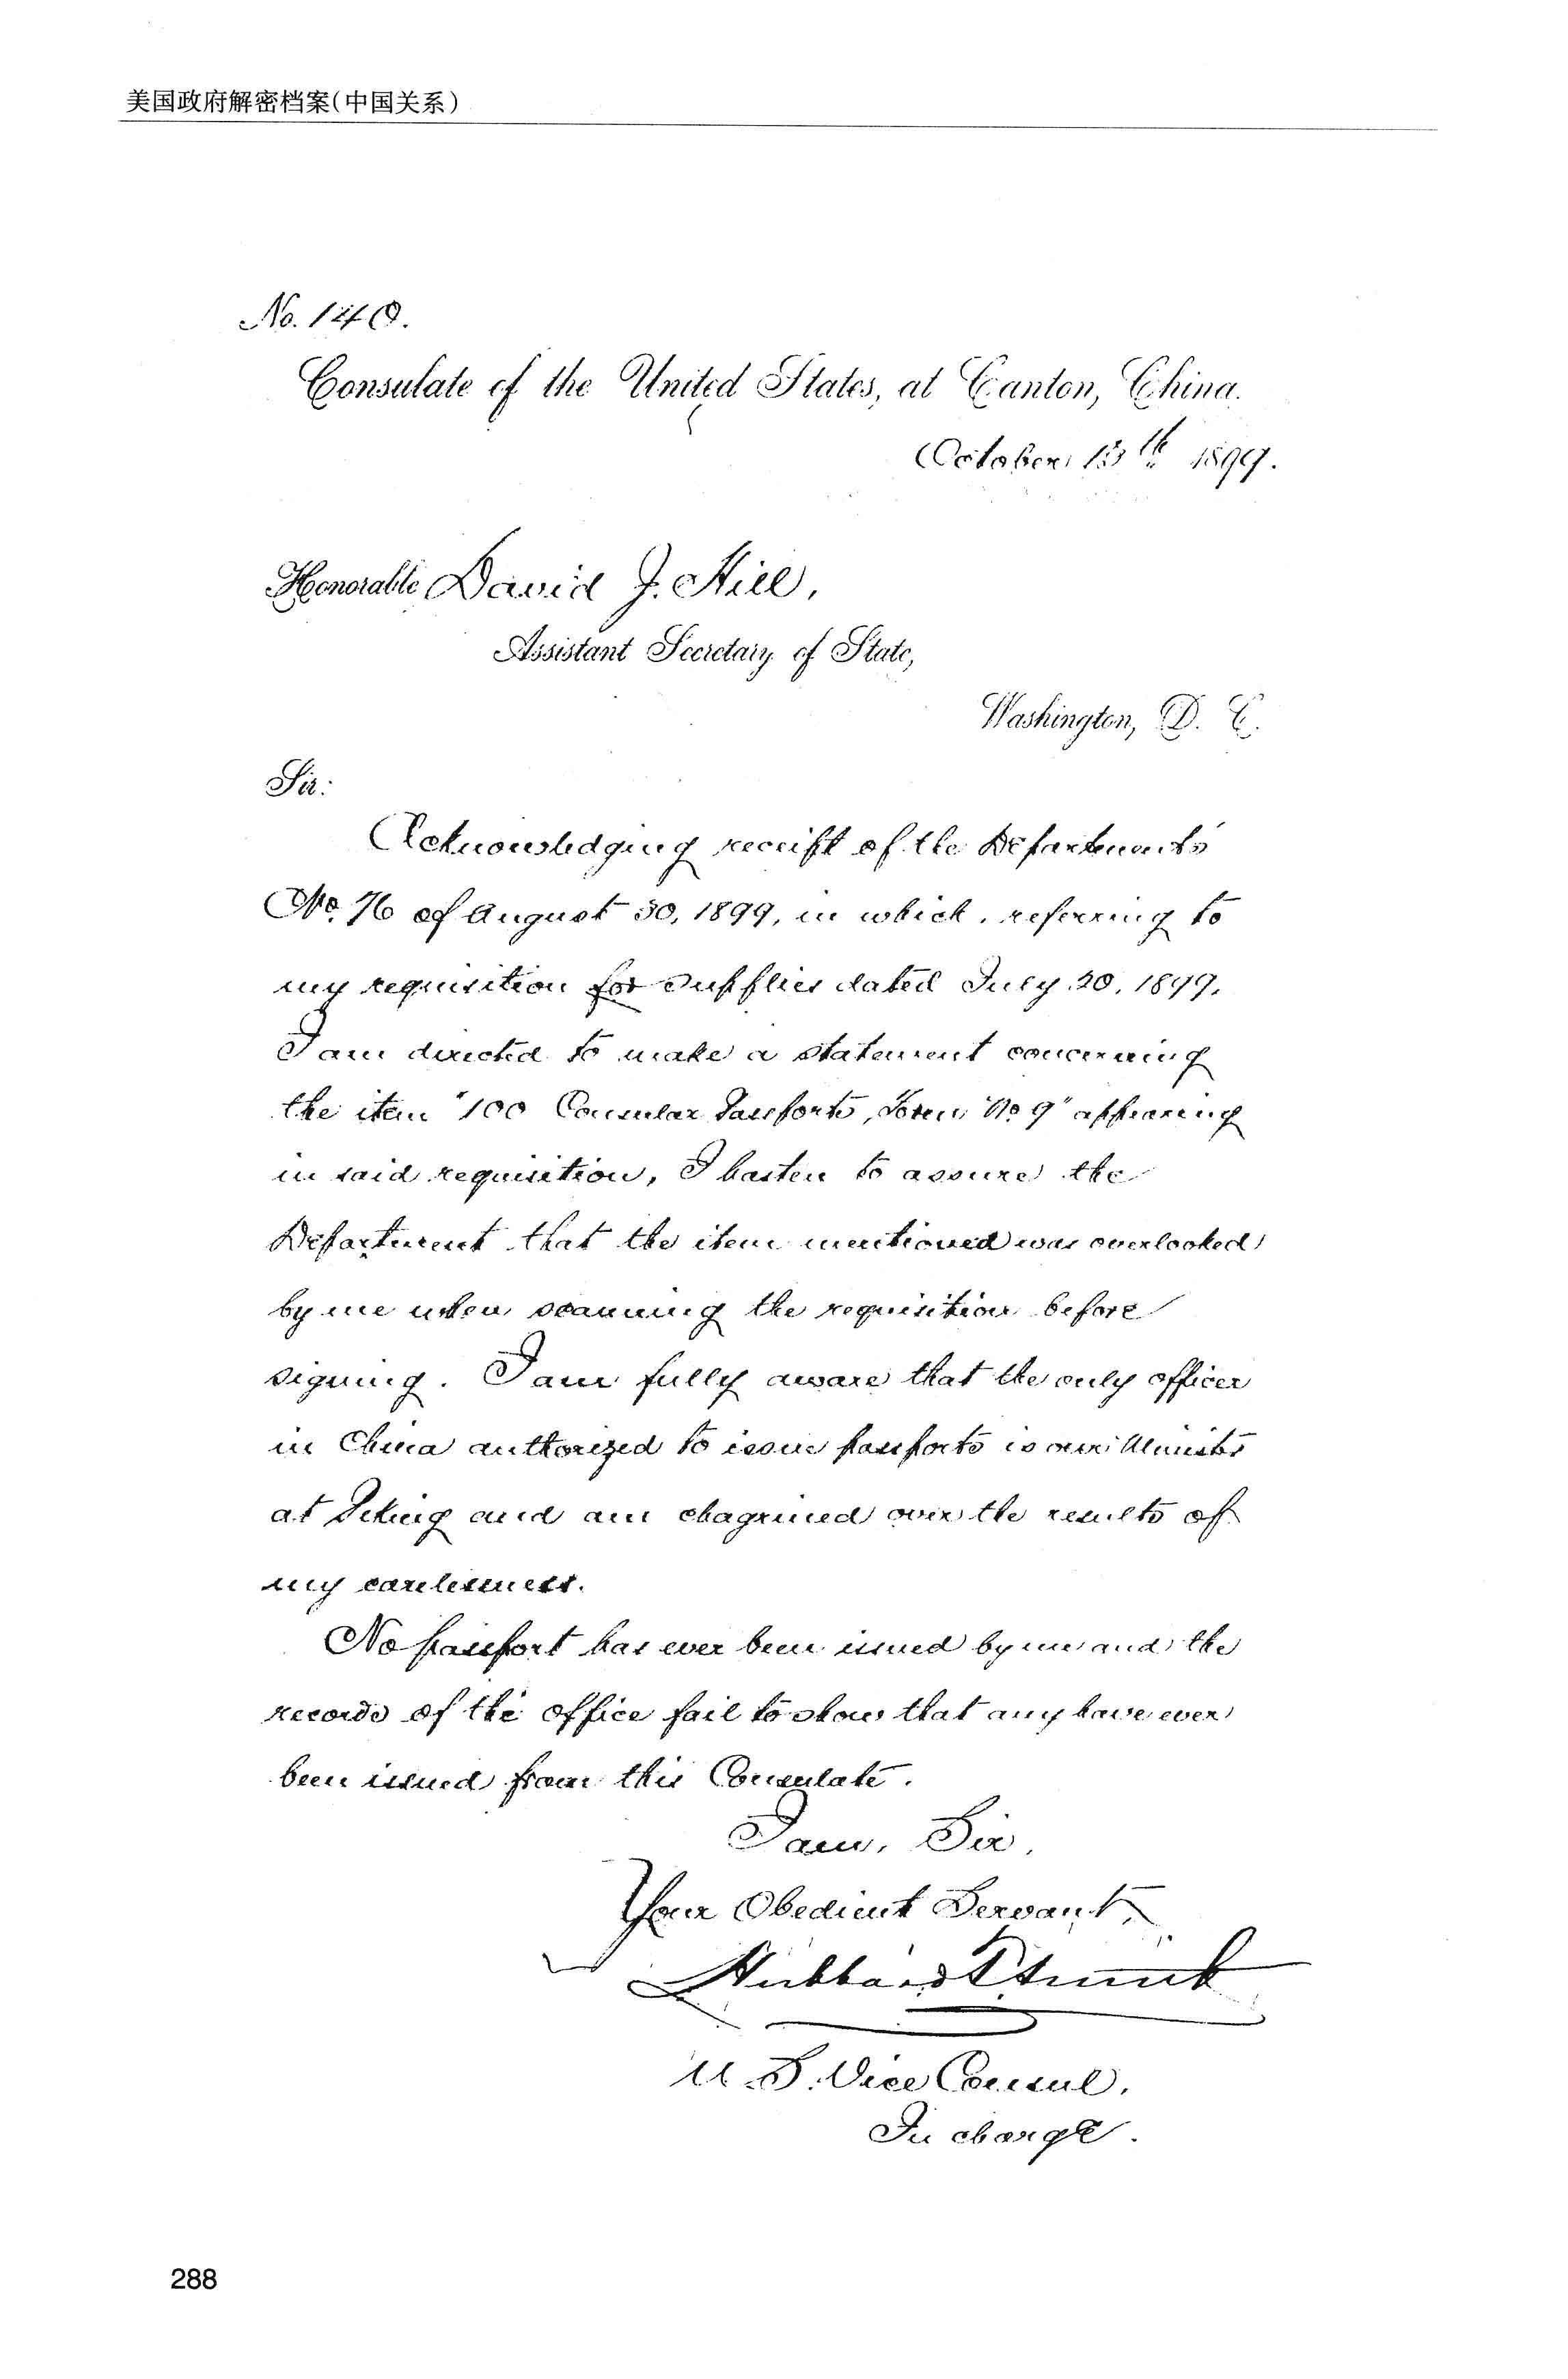 美国政府解密档案(中国关系)
No. 140.
Consulate of the United States, at Canton, China.
October 13th 1899.
Honorable David J. Hill,
Assistant Secretary of State,
Washington, D. C.
Sir:
Acknowledging receipt of the Department's
No. 76 of August 30, 1899, in which, referring to
my requisition for supplies dated July 20, 1899,
I am directed to make a statement concerning
the item "100 Consular Passports, Form No 9" appearing
in said requisition, I hasten to assure the
Department that the item mentioned was overlooked
by me when scanning the requisition before
signing. I am fully aware that the only officer
in China authorized to issue passports is our Minister
at Peking and am chagrined over the results of
my carelessness.
No passport has ever been issued by me and the
records of the office fail to show that any have ever
been issued from this Consulate.
I am, Sir,
Your Obedient Servant,
Hubbard
U. S. Vice Consul,
In charge.
288